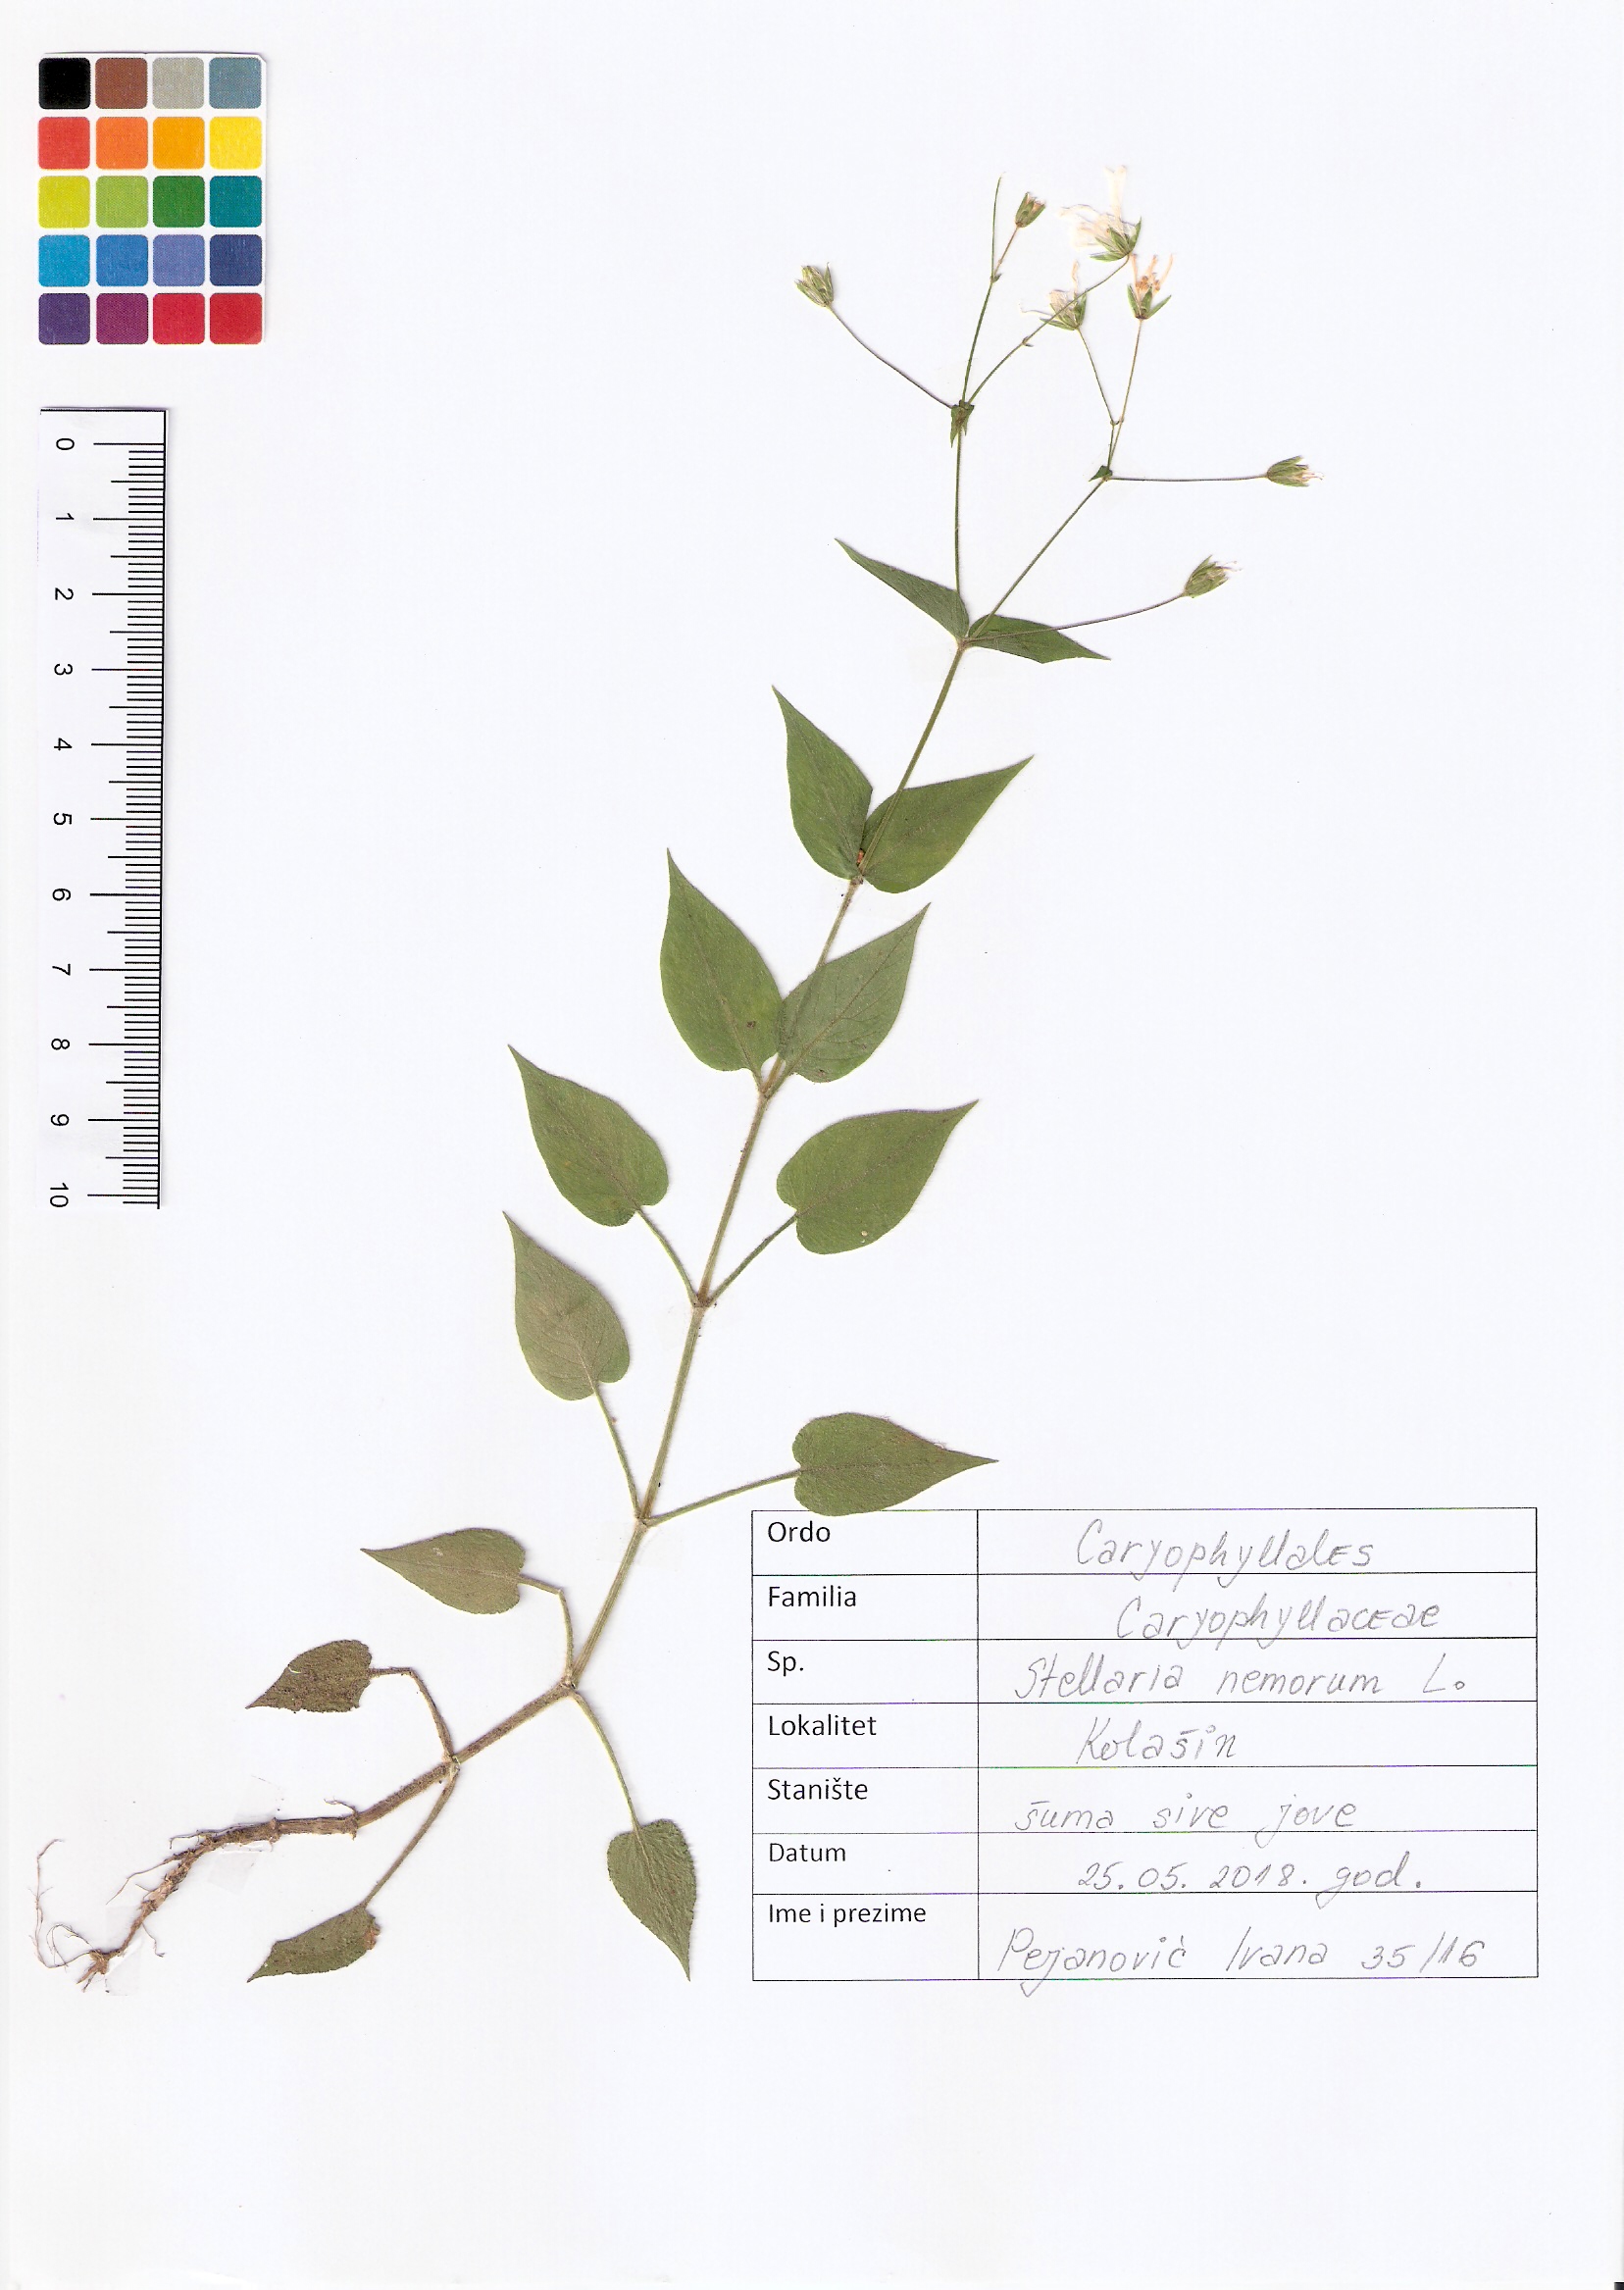 0
1
2
3
4
5
6
7
8
9
10
Ordo Caryophyllales
Familia Caryophyllaceae
Sp. Stellaria nemorum L.
Lokalitet Kolašin
Stanište šuma sive jove
Datum 25.05.2018. god.
Ime i prezime Pejanović Ivana 35/16